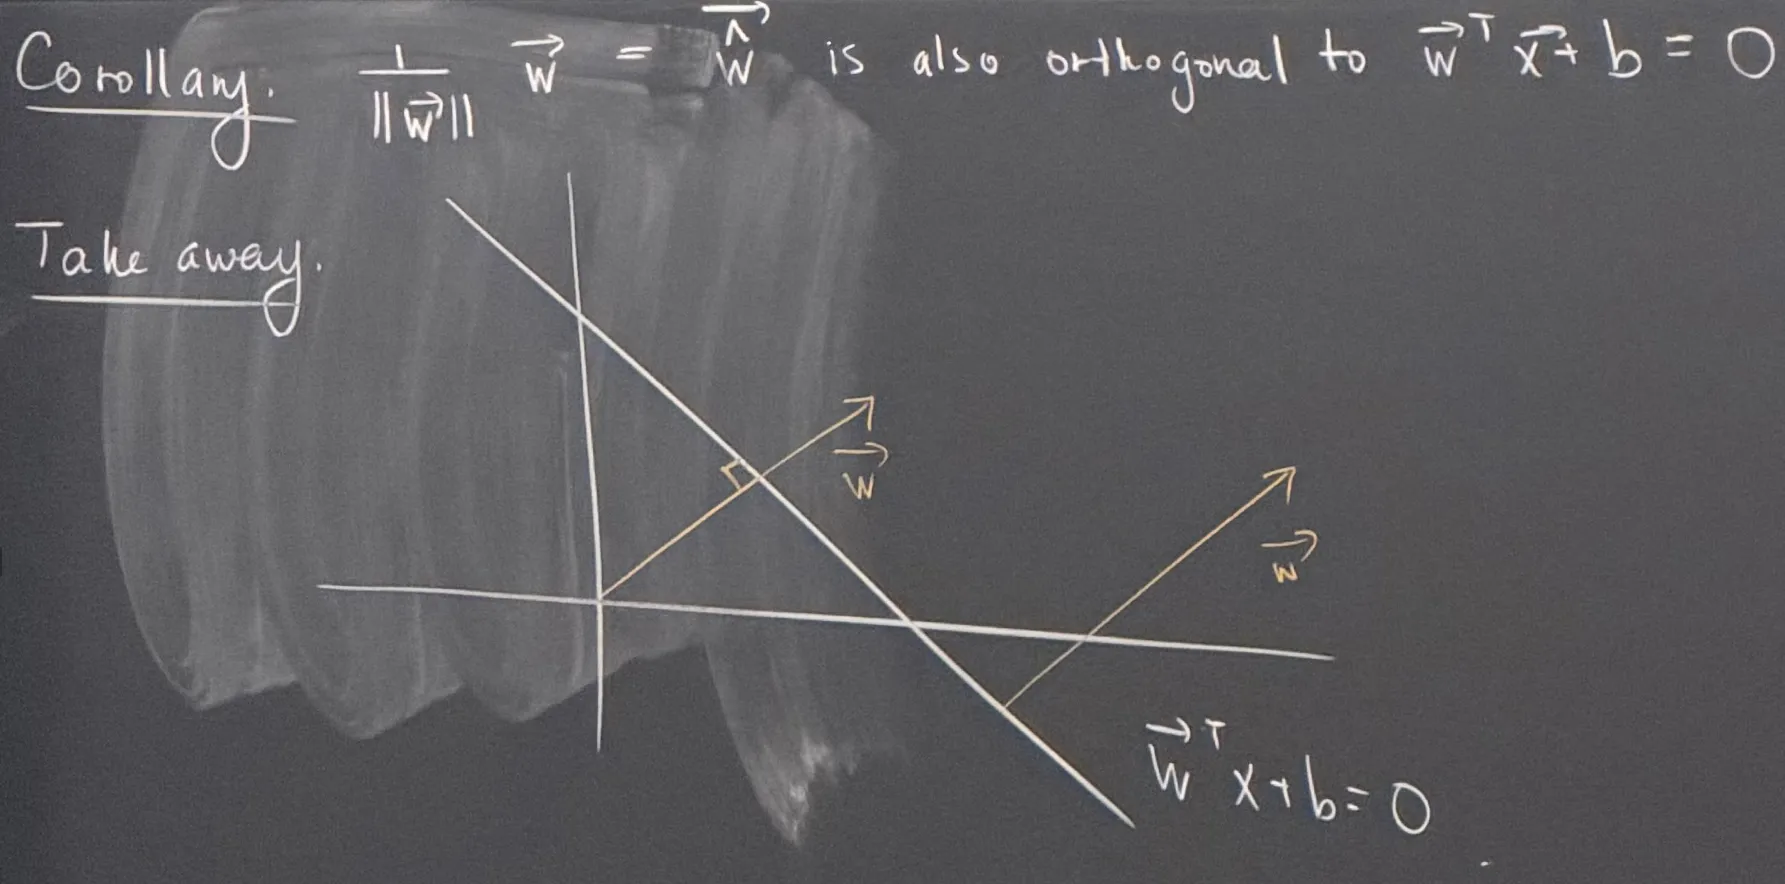 Corollary. 1/||w⃗|| w⃗ = ŵ⃗ is also orthogonal to w⃗ᵀ x⃗ + b = 0
Take away.
w⃗
w⃗
w⃗ᵀ x + b = 0